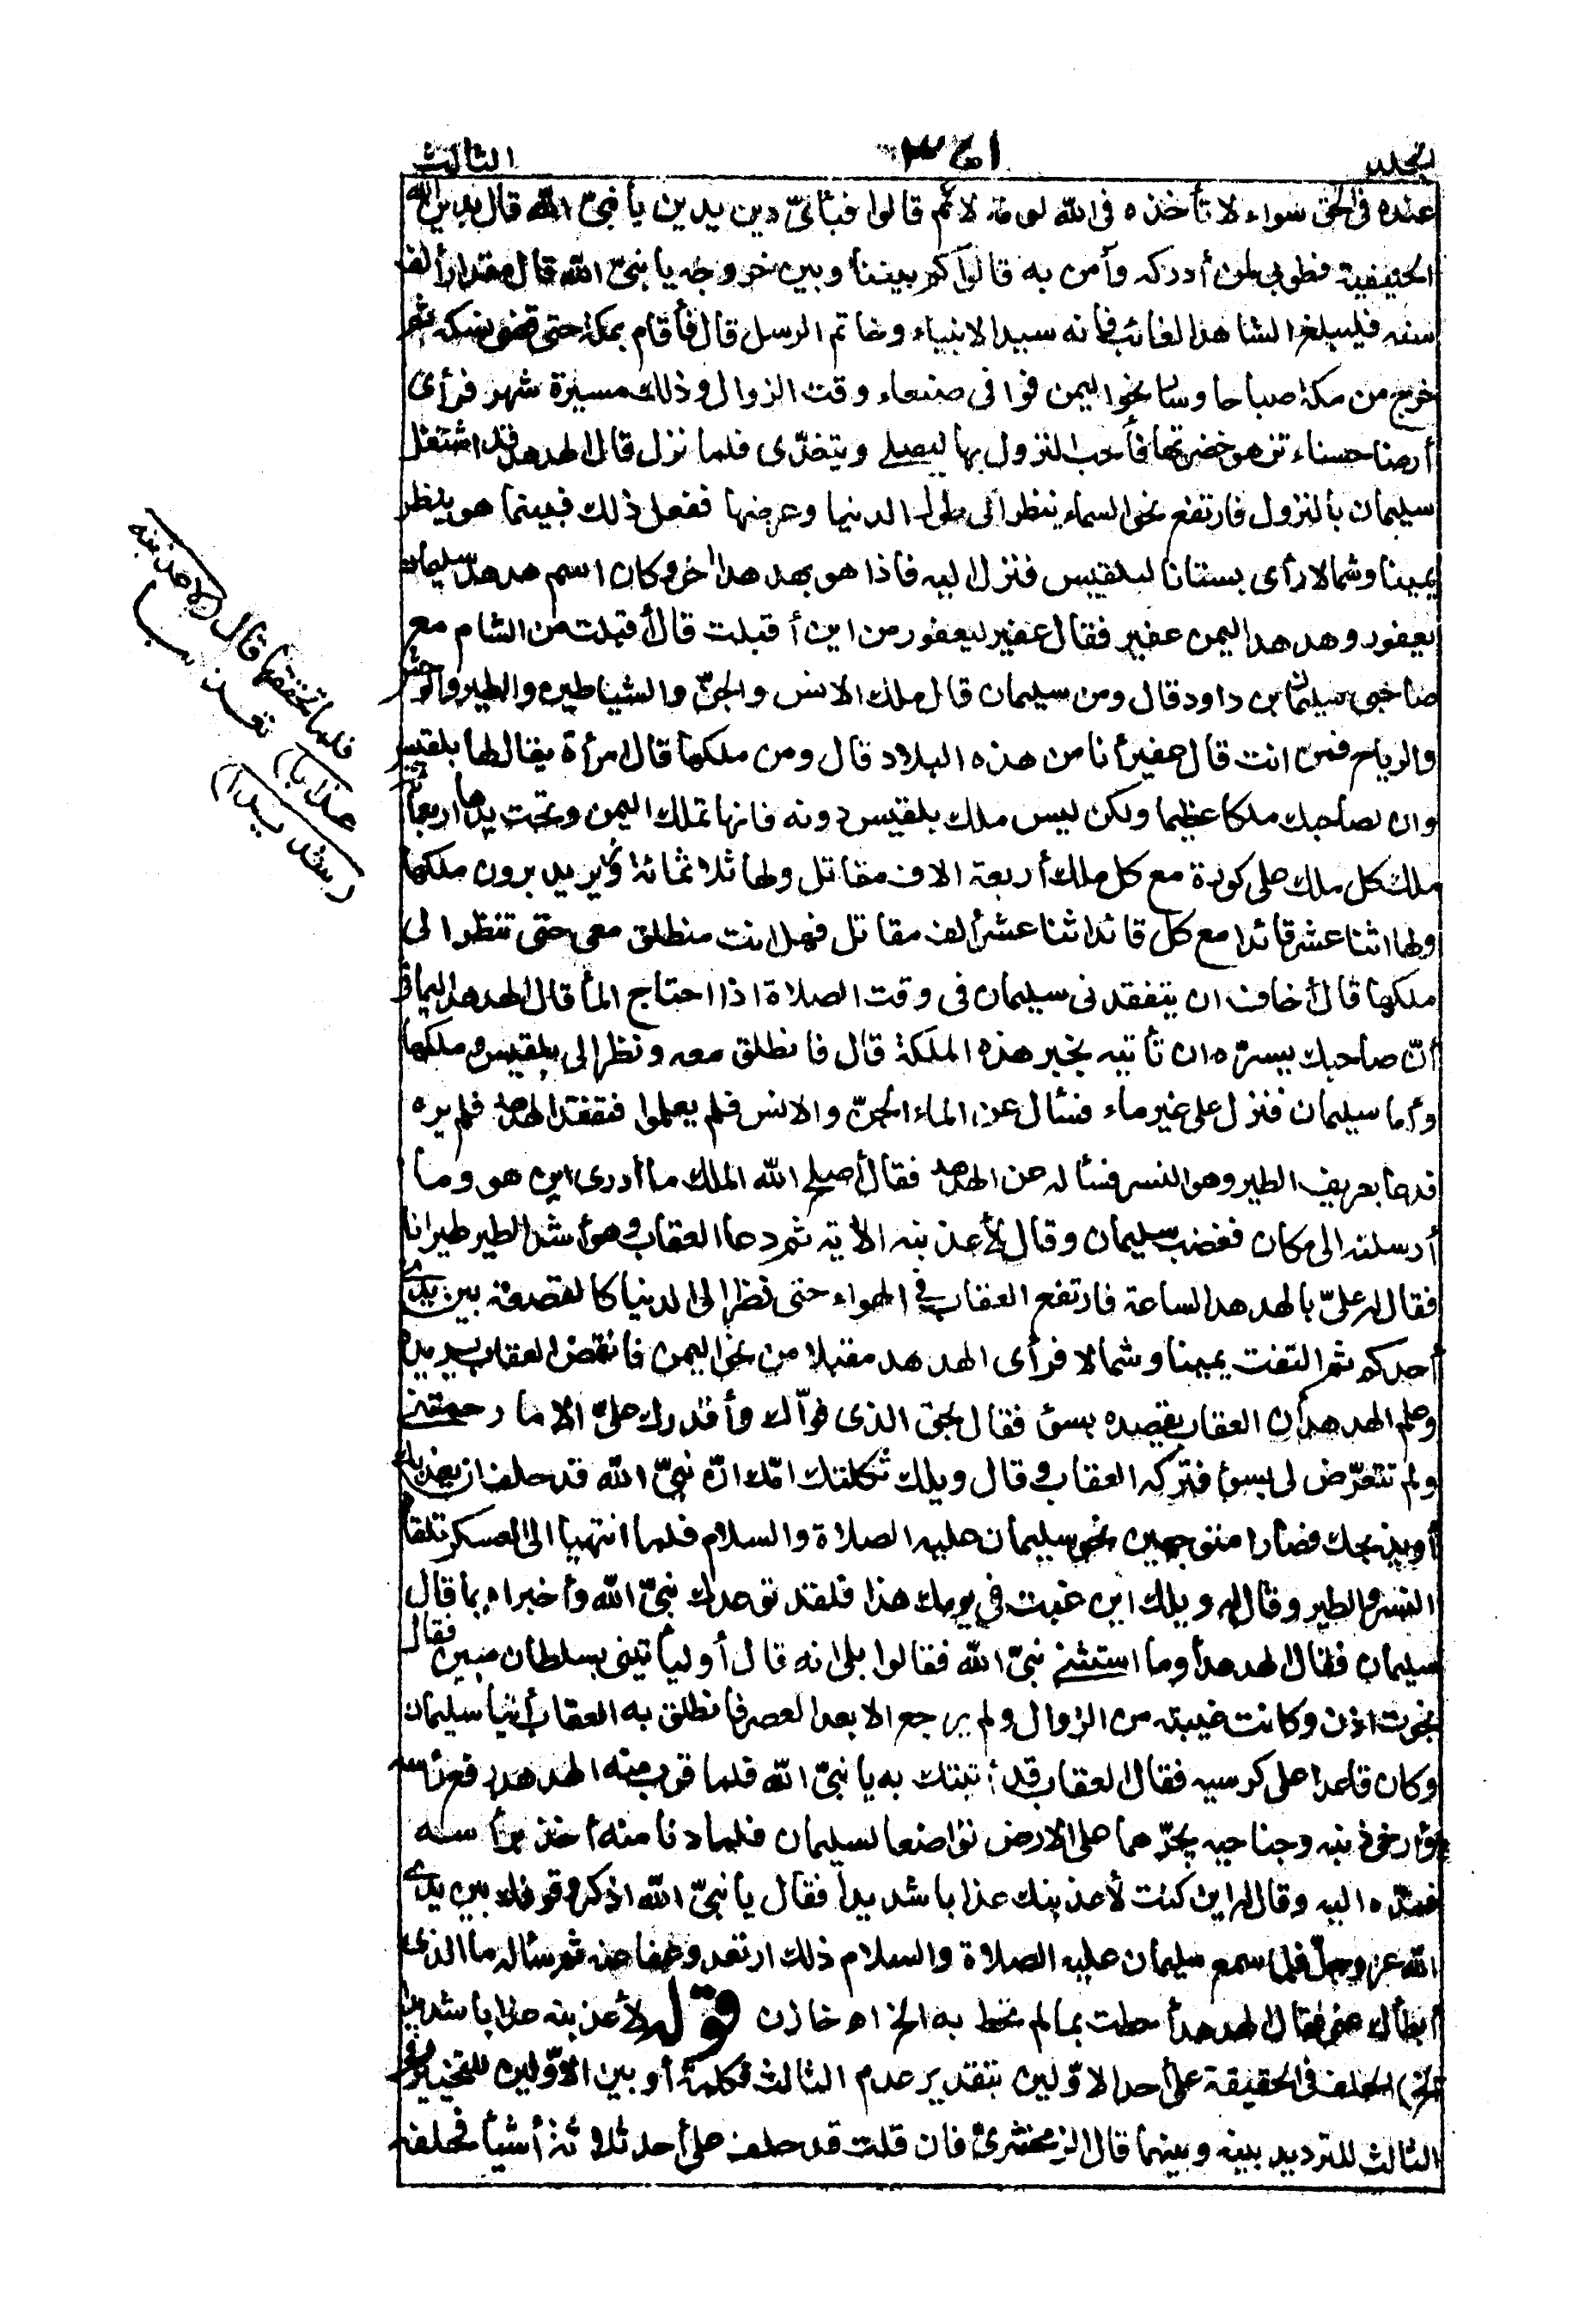 المجلد ٣٤١ الثالث
عنده فى الحق سواء لا تأخذه فى الله لومة لائم قالوا فبأىّ دين يدين يا نبىّ الله قال بدين الله
الحنيفية فطوبى لمن أدركه وآمن به قالوا كم بيننا وبين خروجه يا نبىّ الله قال مقدار ألف
سنة فليبلغ الشاهد الغائب فانه سيد الانبياء وخاتم الرسل قال فأقام بمكة حتى قضى نسكه ثم
خرج من مكة صباحا وسار نحو اليمن فوافى صنعاء وقت الزوال وذلك مسيرة شهر فرأى
أرضا حسناء تزهو خضرتها فأحب النزول بها ليصلى ويتغدّى فلما نزل قال الهدهد قد اشتغل
سليمان بالنزول فارتفع نحو السماء ينظر الى طول الدنيا وعرضها ففعل ذلك فبينما هو ينظر
يمينا وشمالا رأى بستانا لبلقيس فنزل اليه فاذا هو بهدهد اٰخر وكان اسم هدهد سليمان
يعفور وهدهد اليمن عفير فقال عفير ليعفور من اين أقبلت قال أقبلت من الشام مع
صاحبى سليمان بن داود قال ومن سليمان قال ملك الانس والجنّ والشياطين والطير والوحش
والرياح فمن انت قال عفير أنا من هذه البلاد قال ومن ملكها قال امرأة يقال لها بلقيس
وان لصاحبك ملكا عظيما ولكن ليس ملك بلقيس دونه فانها تملك اليمن وتحت يدها اربعمائة
ملك كل ملك على كورة مع كل ملك أربعة الاف مقاتل ولها ثلاثمائة وزير يدبرون ملكها
ولها اثنا عشر قائدا مع كل قائد اثنا عشر ألف مقاتل فهل انت منطلق معى حتى تنظر الى
ملكها قال أخاف ان يتفقدنى سليمان فى وقت الصلاة اذا احتاج الماٰ قال الهدهد اليمانى
أنّ صاحبك يسرّه ان تأتيه بخبر هذه الملكة قال فانطلق معه ونظر الى بلقيس وملكها
وأما سليمان فنزل على غير ماء فسأل عن الماء الجنّ والانس فلم يعلموا فتفقد الهدهد فلم يره
فدعا بعريف الطير وهو النسر فسأله عن الهدهد فقال أصلح الله الملك ما أدرى اين هو وما
أرسلته الى مكان فغضب سليمان وقال لأعذبنه الاٰية ثم دعا العقاب وهو أشد الطير طيرانا
فقال له علىّ بالهدهد الساعة فارتفع العقاب فى الهواء حتى نظر الى الدنيا كالقصعة بين يدى
أحدكم ثم التفت يمينا وشمالا فرأى الهدهد مقبلا من نحو اليمن فانقض العقاب يريده
وعلم الهدهد أن العقاب يقصده بسوء فقال بحق الذى قوّاك وأقدرك علىّ الا ما رحمتنى
ولم تتعرّض لى بسوء فتركه العقاب وقال ويلك ثكلتك امّك انّ نبىّ الله قد حلف ان يعذبك
أو يذبحك فصارا متوجهين نحو سليمان عليه الصلاة والسلام فلما انتهيا الى العسكر تلقاه
النسر والطير وقال له ويلك اين غبت فى يومك هذا فلقد توعدك نبىّ الله وأخبراه بما قال
سليمان فقال الهدهد أوما استثنى نبىّ الله فقالوا بلى انه قال أو ليأتينى بسلطان مبين فقال
نجوت اذن وكانت غيبته من الزوال ولم يرجع الا بعد العصر فانطلق به العقاب أتيا سليمان
وكان قاعدا على كرسيه فقال العقاب قد أتيتك به يا نبىّ الله فلما قرب منه الهدهد رفع رأسه
وأرخى ذنبه وجناحيه يجرّهما على الارض تواضعا لسليمان فلما دنا منه أخذ برأسه
فمدّه اليه وقال له اين كنت لأعذبنك عذابا شديدا فقال يا نبىّ الله اذكر وقوفك بين يدى
الله عز وجلّ فلما سمع سليمان عليه الصلاة والسلام ذلك ارتعد وعفا عنه ثم سأله ما الذى
أبطأك عنى فقال الهدهد أحطت بما لم تحط به الخ اه خازن قوله لأعذبنه عذابا شديدا
الخ) الحلف فى الحقيقة على أحد الاوّلين بتقدير عدم الثالث فكلمة أو بين الاوّلين للتخيير وفى
الثالث للترديد بينه وبينهما قال الزمخشرى فان قلت قد حلف على أحد ثلاثة أشيأ فحلفه
فلما تحققها قال (لاعذبنه
عذابا) تعذيبا
(شديدا)